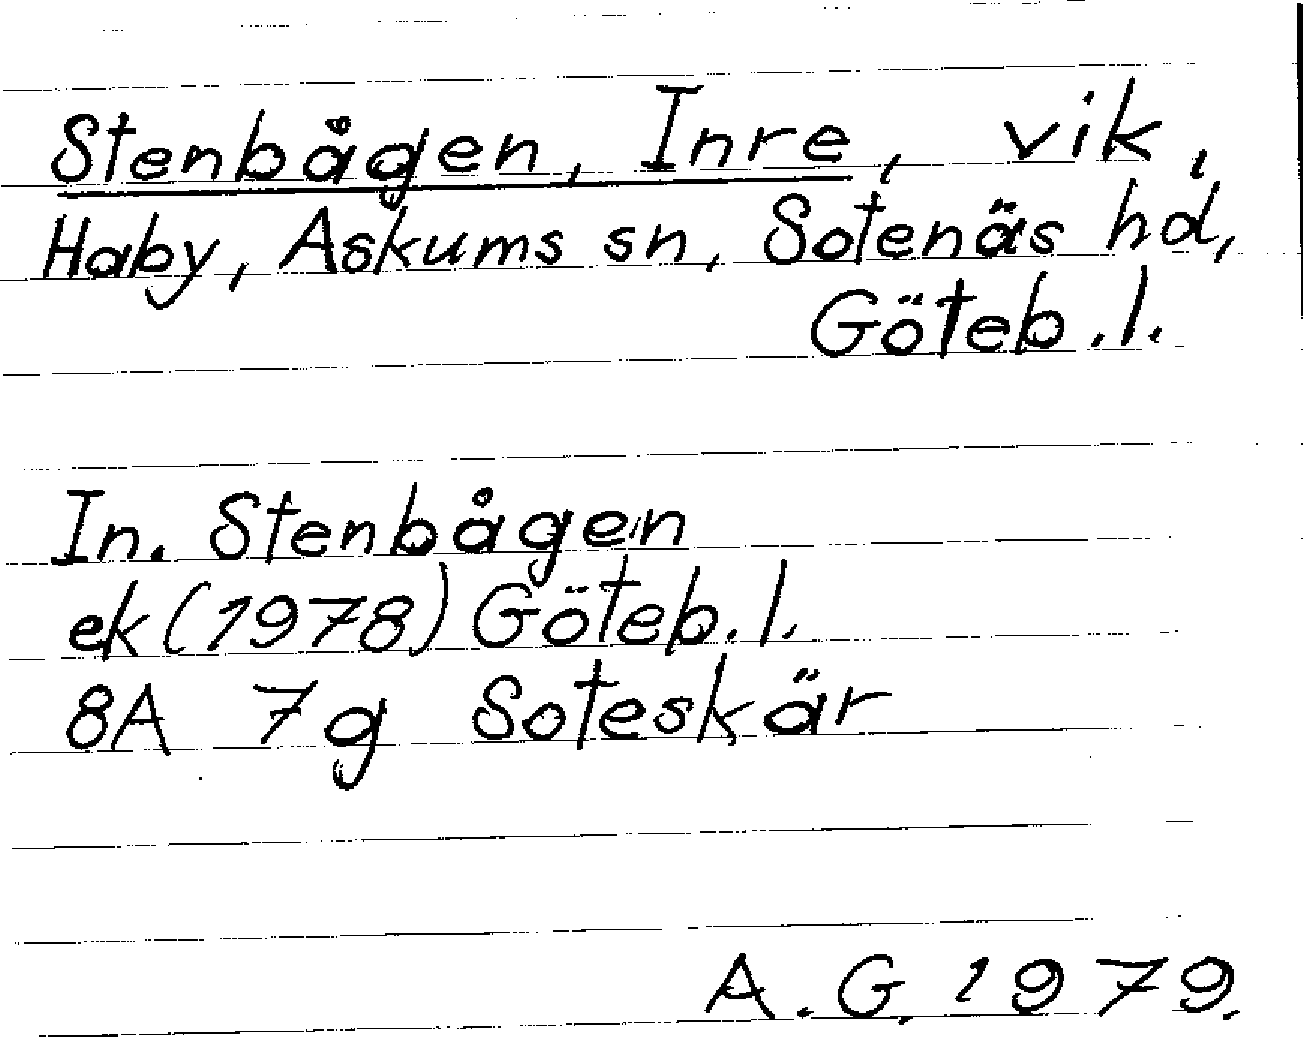 Stenbågen, Inre, vik,
Haby, Askums sn, Sotenäs hd,
Göteb. l.
In. Stenbågen
ek (1978) Göteb. l.
8A 7g Soteskär
A. G. 1979.